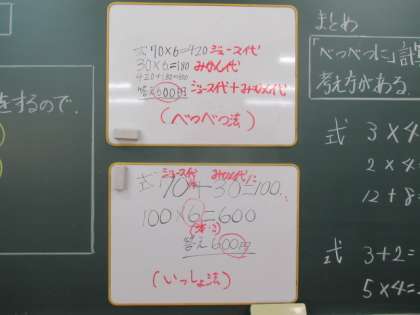 をするので、
式 70×6=420 ジュース代
30×6=180 みかん代
420+180=600
答え600円 ジュース代+みかん代
(べつべつ法)
ジュース代 みかん代
式 70+30=100
100×6=600
答え600円
(いっしょ法)
まとめ
「べつべつに」計
考え方がある。
式 3×4
2×4=
12+8=
式 3+2=
5×4=